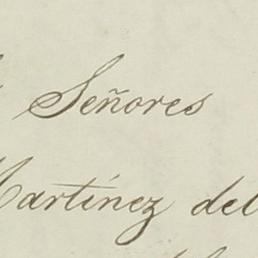 Señores
Martínez del